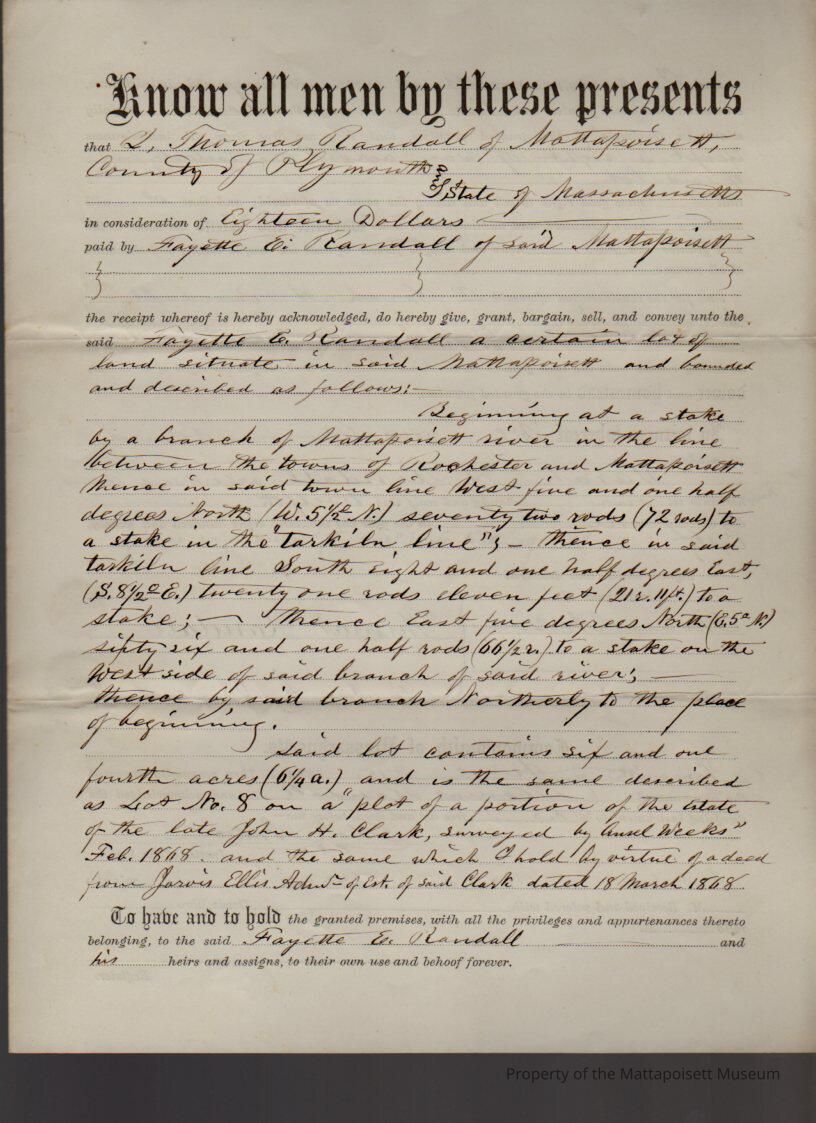 Know all men by these presents
that I, Thomas Randall of Mattapoisett,
County of Plymouth &
State of Massachusetts
in consideration of Eighteen Dollars
paid by Fayette E. Randall of said Mattapoisett
the receipt whereof is hereby acknowledged, do hereby give, grant, bargain, sell, and convey unto the
said Fayette E. Randall a certain lot of
land situate in said Mattapoisett and bounded
and described as follows:—
Beginning at a stake
by a branch of Mattapoisett river in the line
between the towns of Rochester and Mattapoisett
thence in said town line West five and one half
degrees North (W. 5½° N.) seventy two rods (72 rods) to
a stake in the "tarkiln line"; — thence in said
tarkiln line South eight and one half degrees East,
(S. 8½° E.) twenty one rods eleven feet (21 r. 11 ft.) to a
stake; — thence East five degrees North (E. 5° N.)
sixty six and one half rods (66½ r.) to a stake on the
West side of said branch of said river; —
thence by said branch Northerly to the place
of beginning.
Said lot contains six and one
fourth acres (6¼ a.) and is the same described
as Lot No. 8 on a "plot of a portion of the estate
of the late John H. Clark, surveyed by Ansel Weeks"
Feb. 1868. and the same which I hold by virtue of a deed
from Jarvis Ellis Admr. of Est. of said Clark dated 18 March 1868
To have and to hold the granted premises, with all the privileges and appurtenances thereto
belonging, to the said Fayette E. Randall and
his heirs and assigns, to their own use and behoof forever.
Property of the Mattapoisett Museum